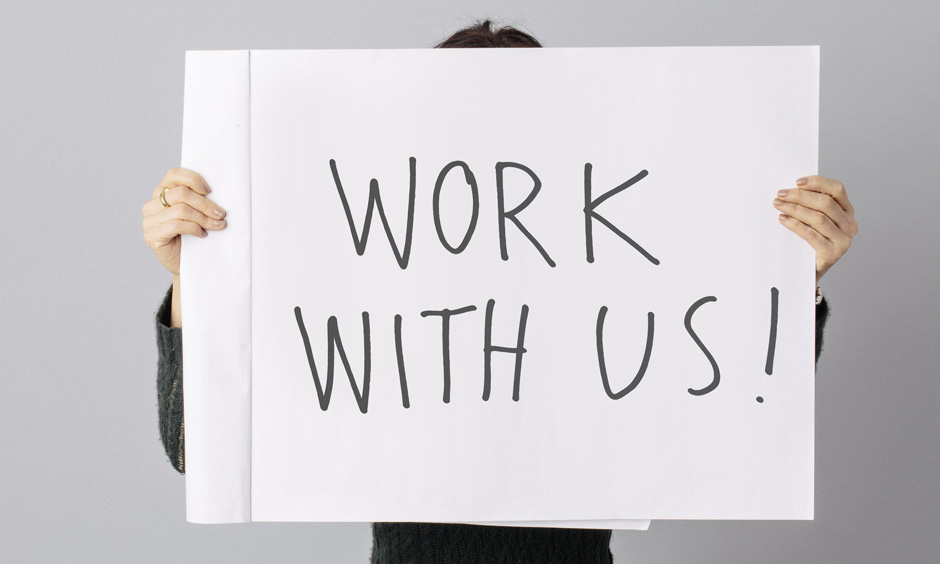 WORK
WITH US!